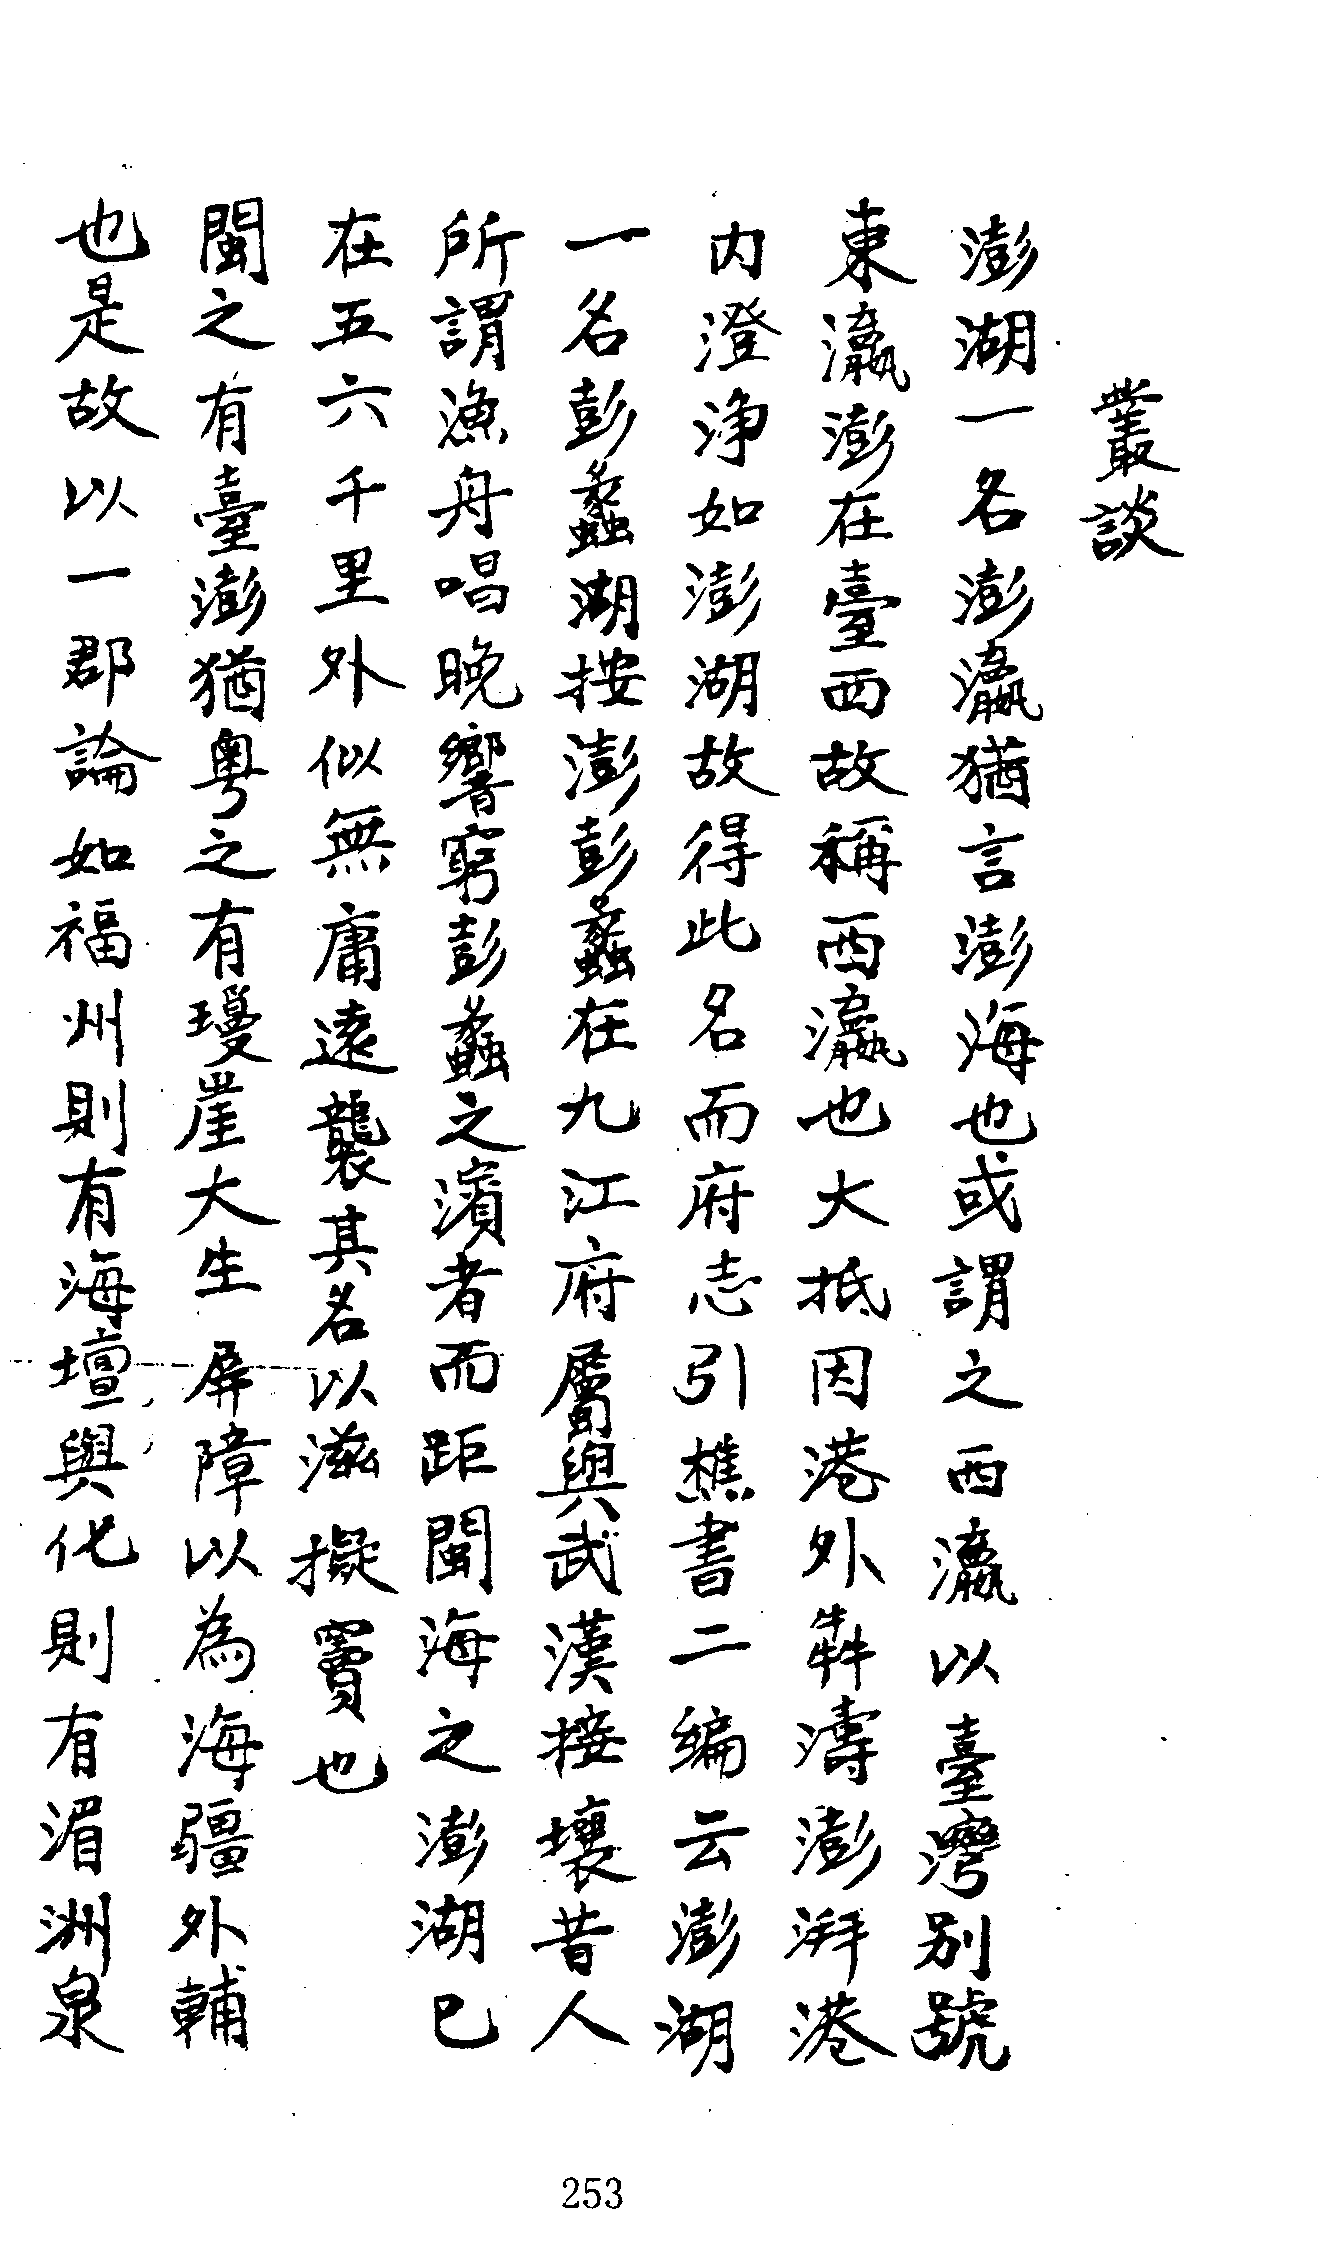 叢談
澎湖一名澎瀛猶言澎海也或謂之西瀛以臺灣別號
東瀛澎在臺西故稱西瀛也大抵因港外犇濤澎湃港
內澄淨如澎湖故得此名而府志引樵書二編云澎湖
一名彭蠡湖按澎彭蠡在九江府屬與武漢接壤昔人
所謂漁舟唱晚響窮彭蠡之濱者而距閩海之澎湖已
在五六千里外似無庸遠襲其名以滋擬竇也
閩之有臺澎猶粵之有瓊崖大生屏障以為海疆外輔
也是故以一郡論如福州則有海壇與化則有湄洲泉
253